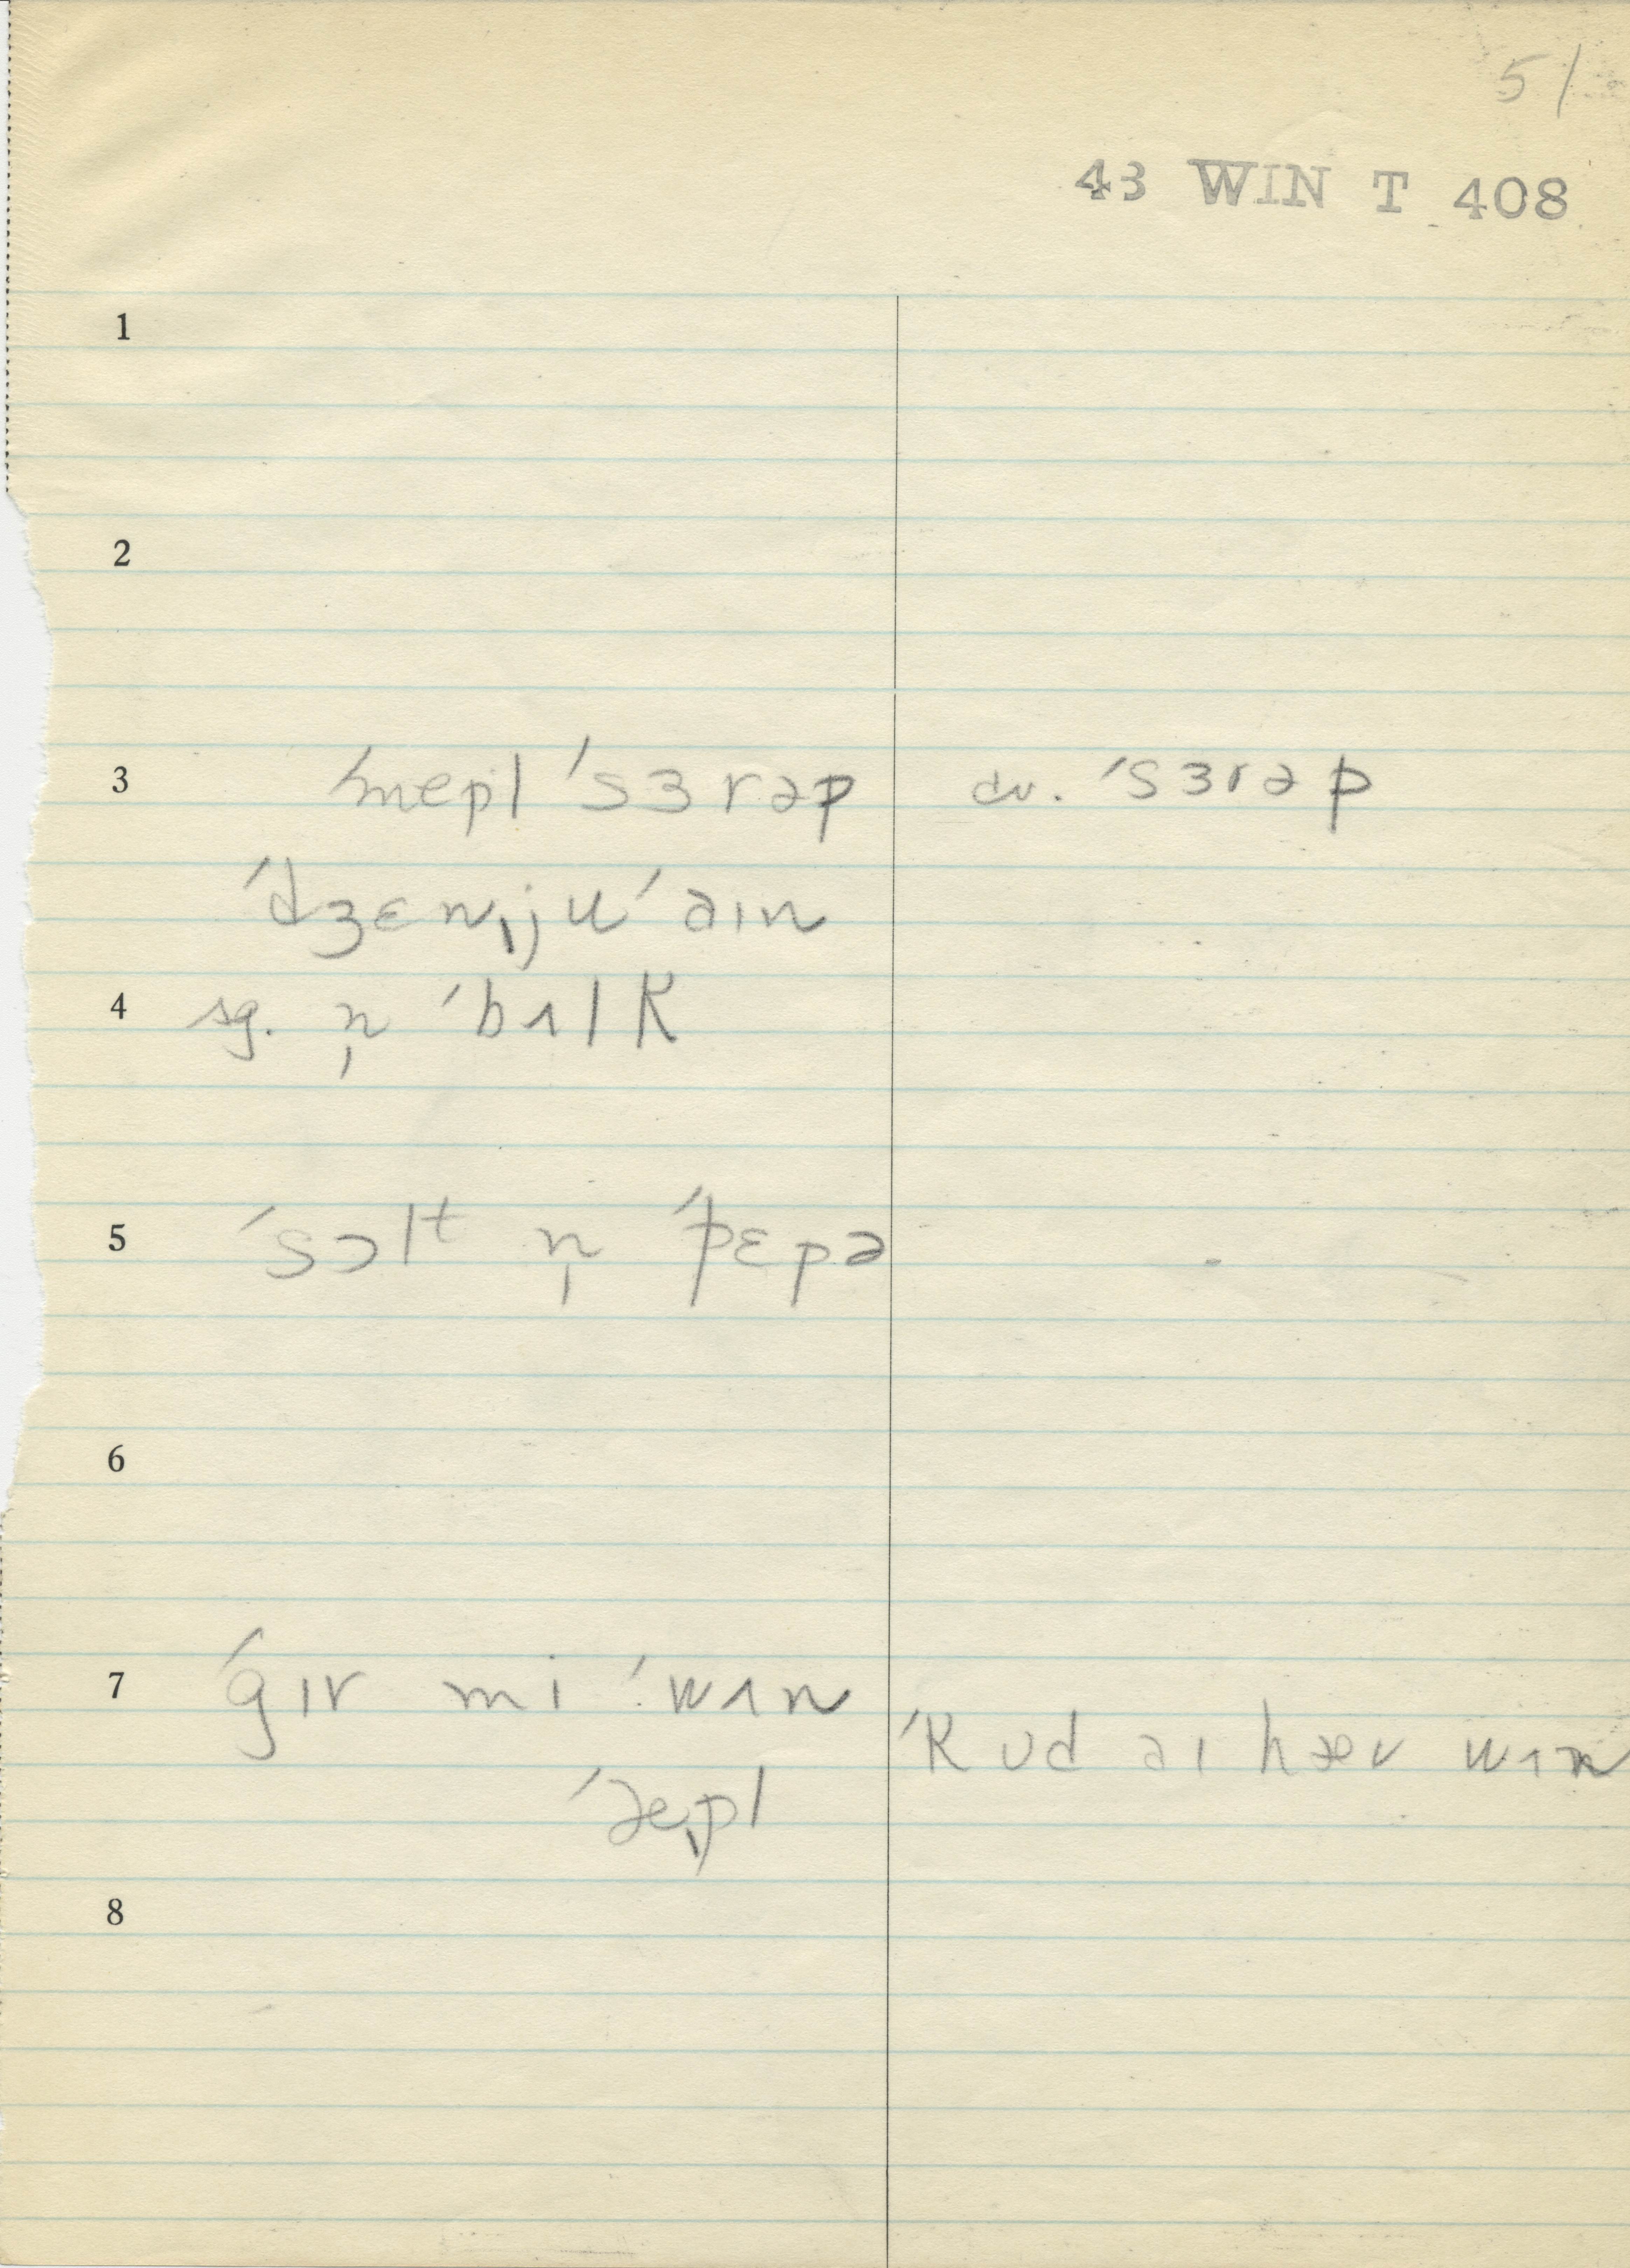 51
43 WIN T 408
1
2
3 ˈmepl ˈsɜrəp cv. ˈsɜrəp
ˈdʒɛnˌjuˈəɪn
4 sg. n̩ ˈbɪlk
5 ˈsɔlt n̩ ˈpɛpə
6
7 ˈgɪr mi ˈwɪn ˈkʊd əɪ hæv wɪn
ˈæe̩pl
8